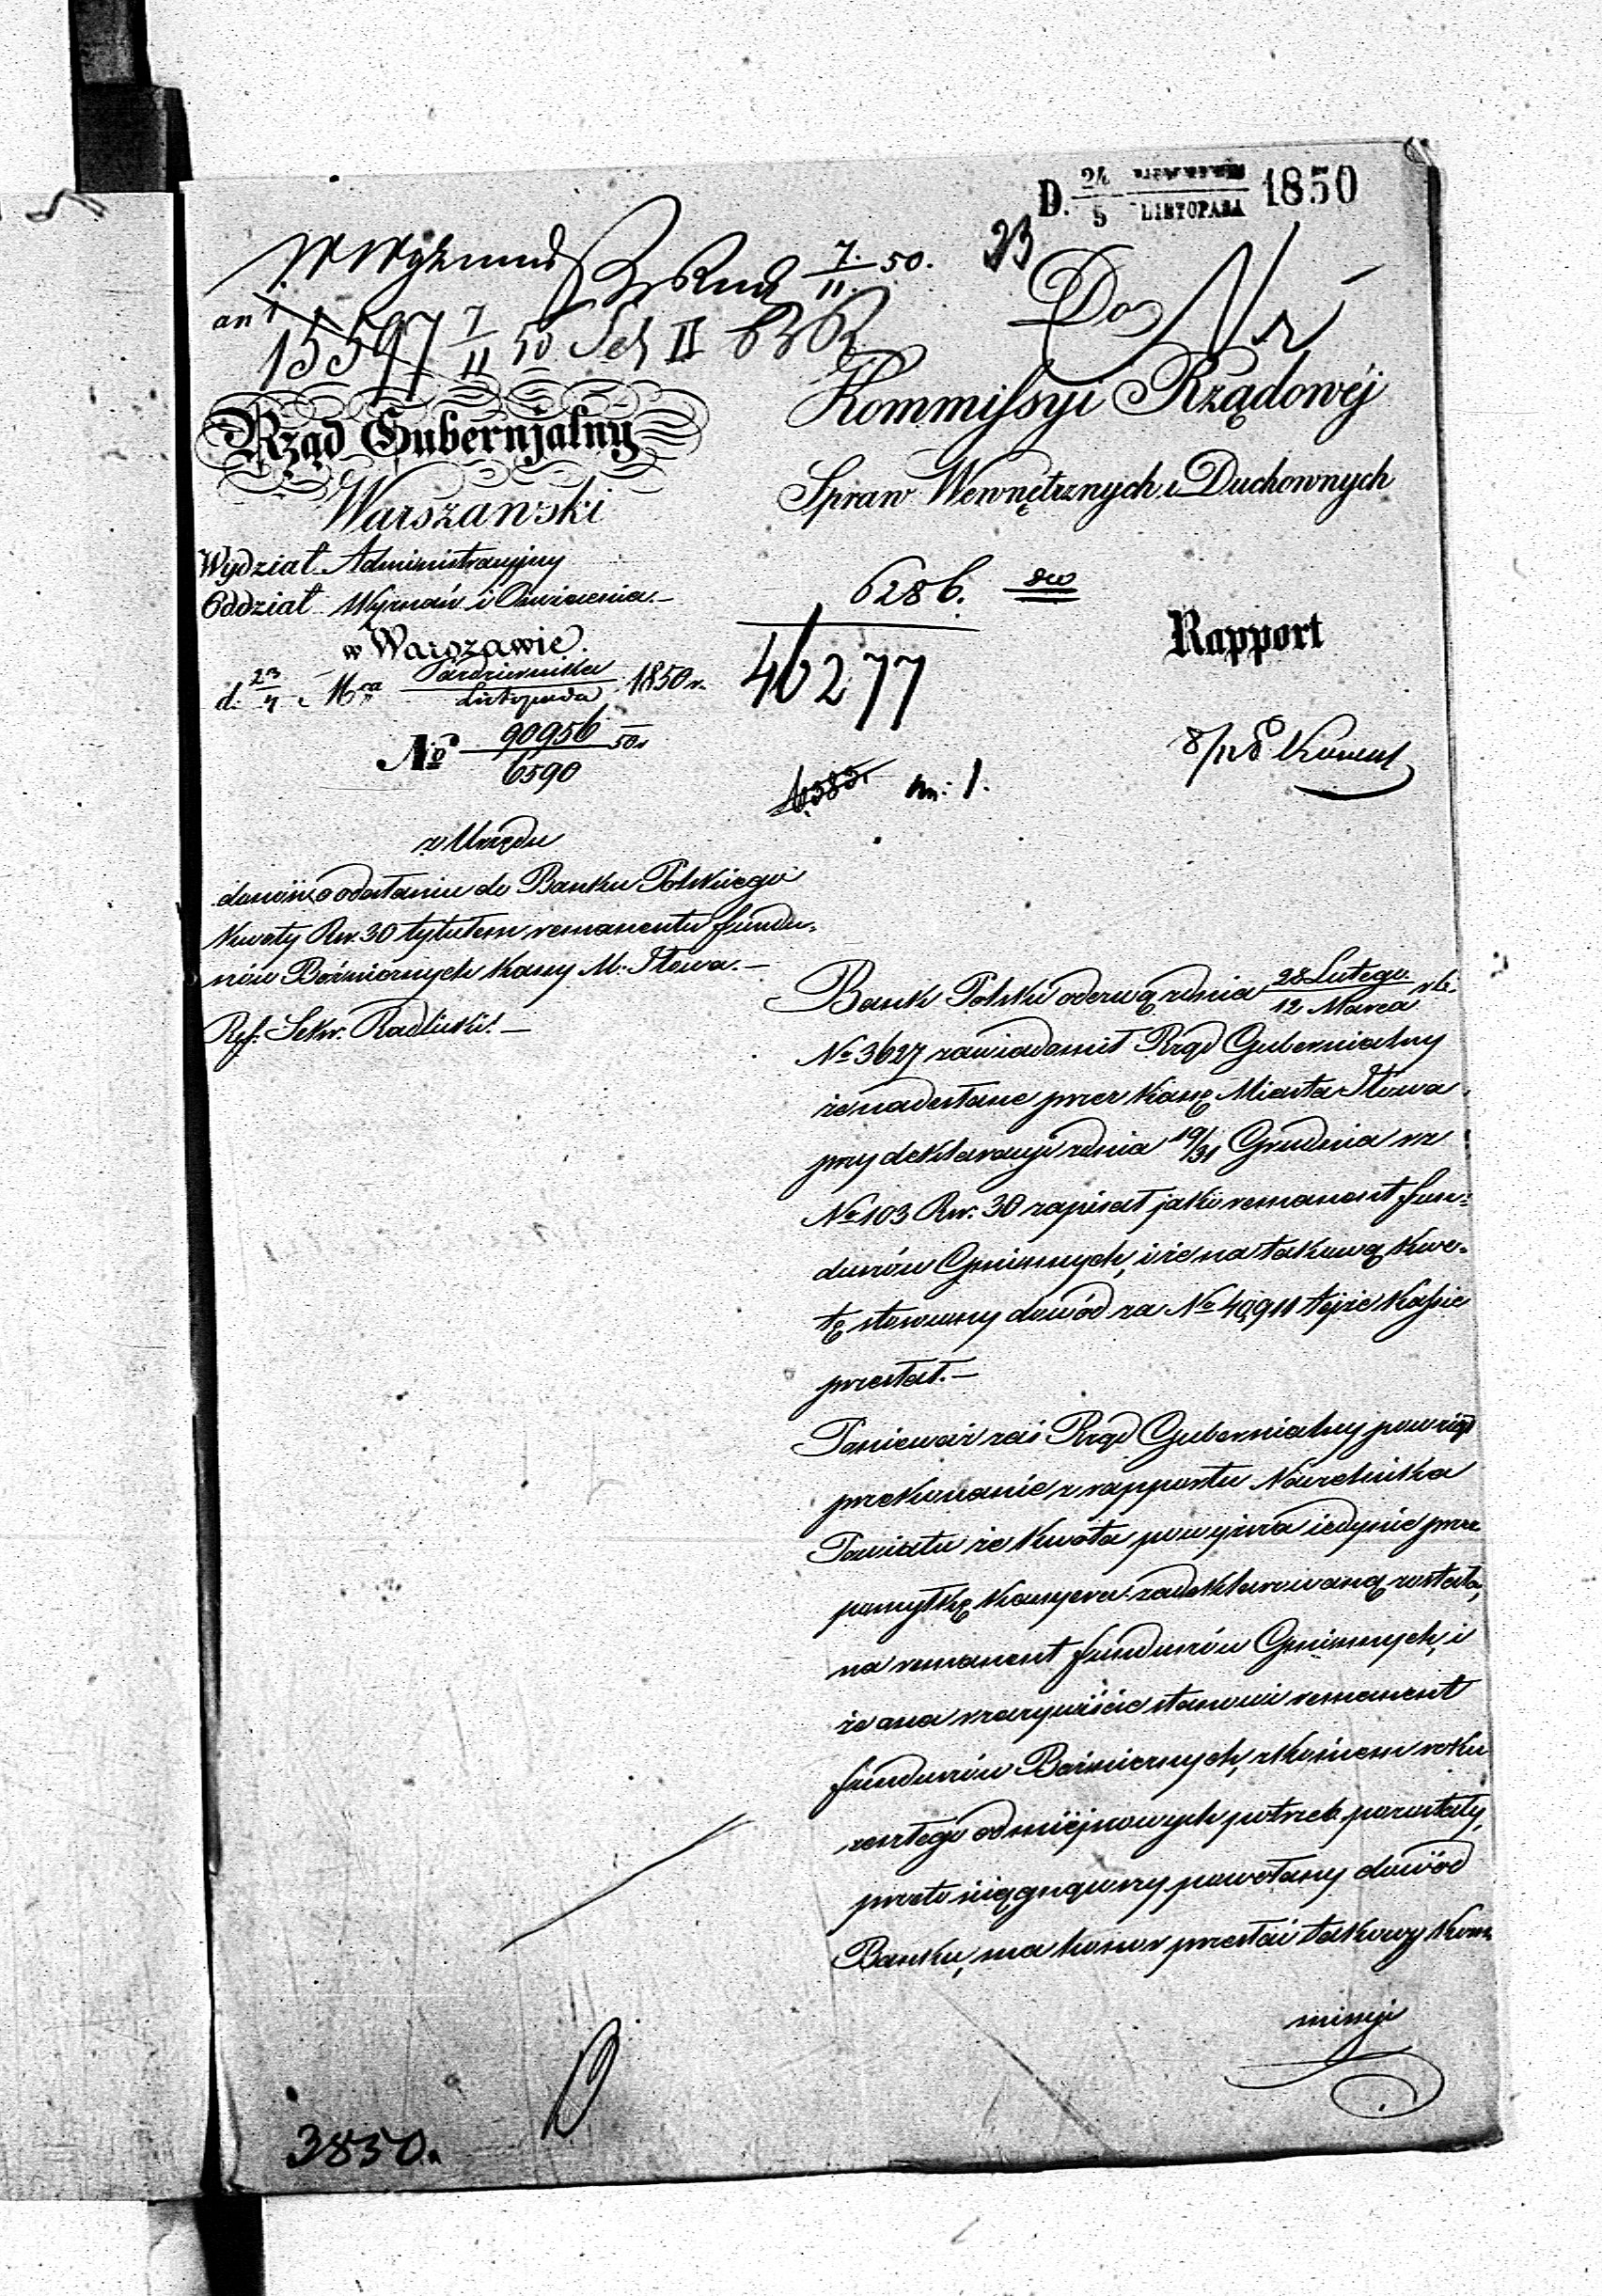 D. 24/5 LISTOPADA 1850
W Wyznań 7./11. 50. 23
an
15597 7/11 50 Sek II
Do
Rząd Gubernjalny
Kommissyi Rządowéj
Warszawski
Spraw Wewnętrznych i Duchownych
Wydział Administracyjny
Oddział Wyznań i Oświecenia.—
6286.
w Warszawie.
46277
Rapport
d. 23/4 Mca Października/Listopada 1850 r.
No 90956/6590 50r
6585. m: 1.
z Urzędu
donosi o odesłaniu do Banku Polskiego
Kwoty Rsr. 30 tytułem remanentu fundu-
szów Bożniczych Kassy M. Iłowa.—
Ref: Sekr. Radlicki.—
Bank Polski odezwą z dnia 28 Lutego/12 Marca r. b.
No 3627 zawiadomił Rząd Gubernialny
że nadesłane przez Kassę Miasta Iłowa
przy deklaracyi z dnia 19/31 Grudnia r z
No 103 Rsr. 30 zapisał jako remanent fun-
duszów Gminnych, i że na takową kwo-
tę stosowny dowód za No 40,911 tejże Kassie
przesłał.—
Ponieważ zaś Rząd Gubernialny powziął
przekonanie z rapportu Naczelnika
Powiatu że Kwota powyższa iedynie przez
pomyłkę Kassyera zadeklarowaną została,
na remanent funduszów Gminnych, i
że ona rzeczywiście stanowi remanent
funduszów Bożniczych, z końcem roku
zeszłego od miejscowych potrzeb pozostały,
przeto ściągnąwszy powołany dowód
Banku, ma honor przesłać takowy Kom-
missyi
3850.